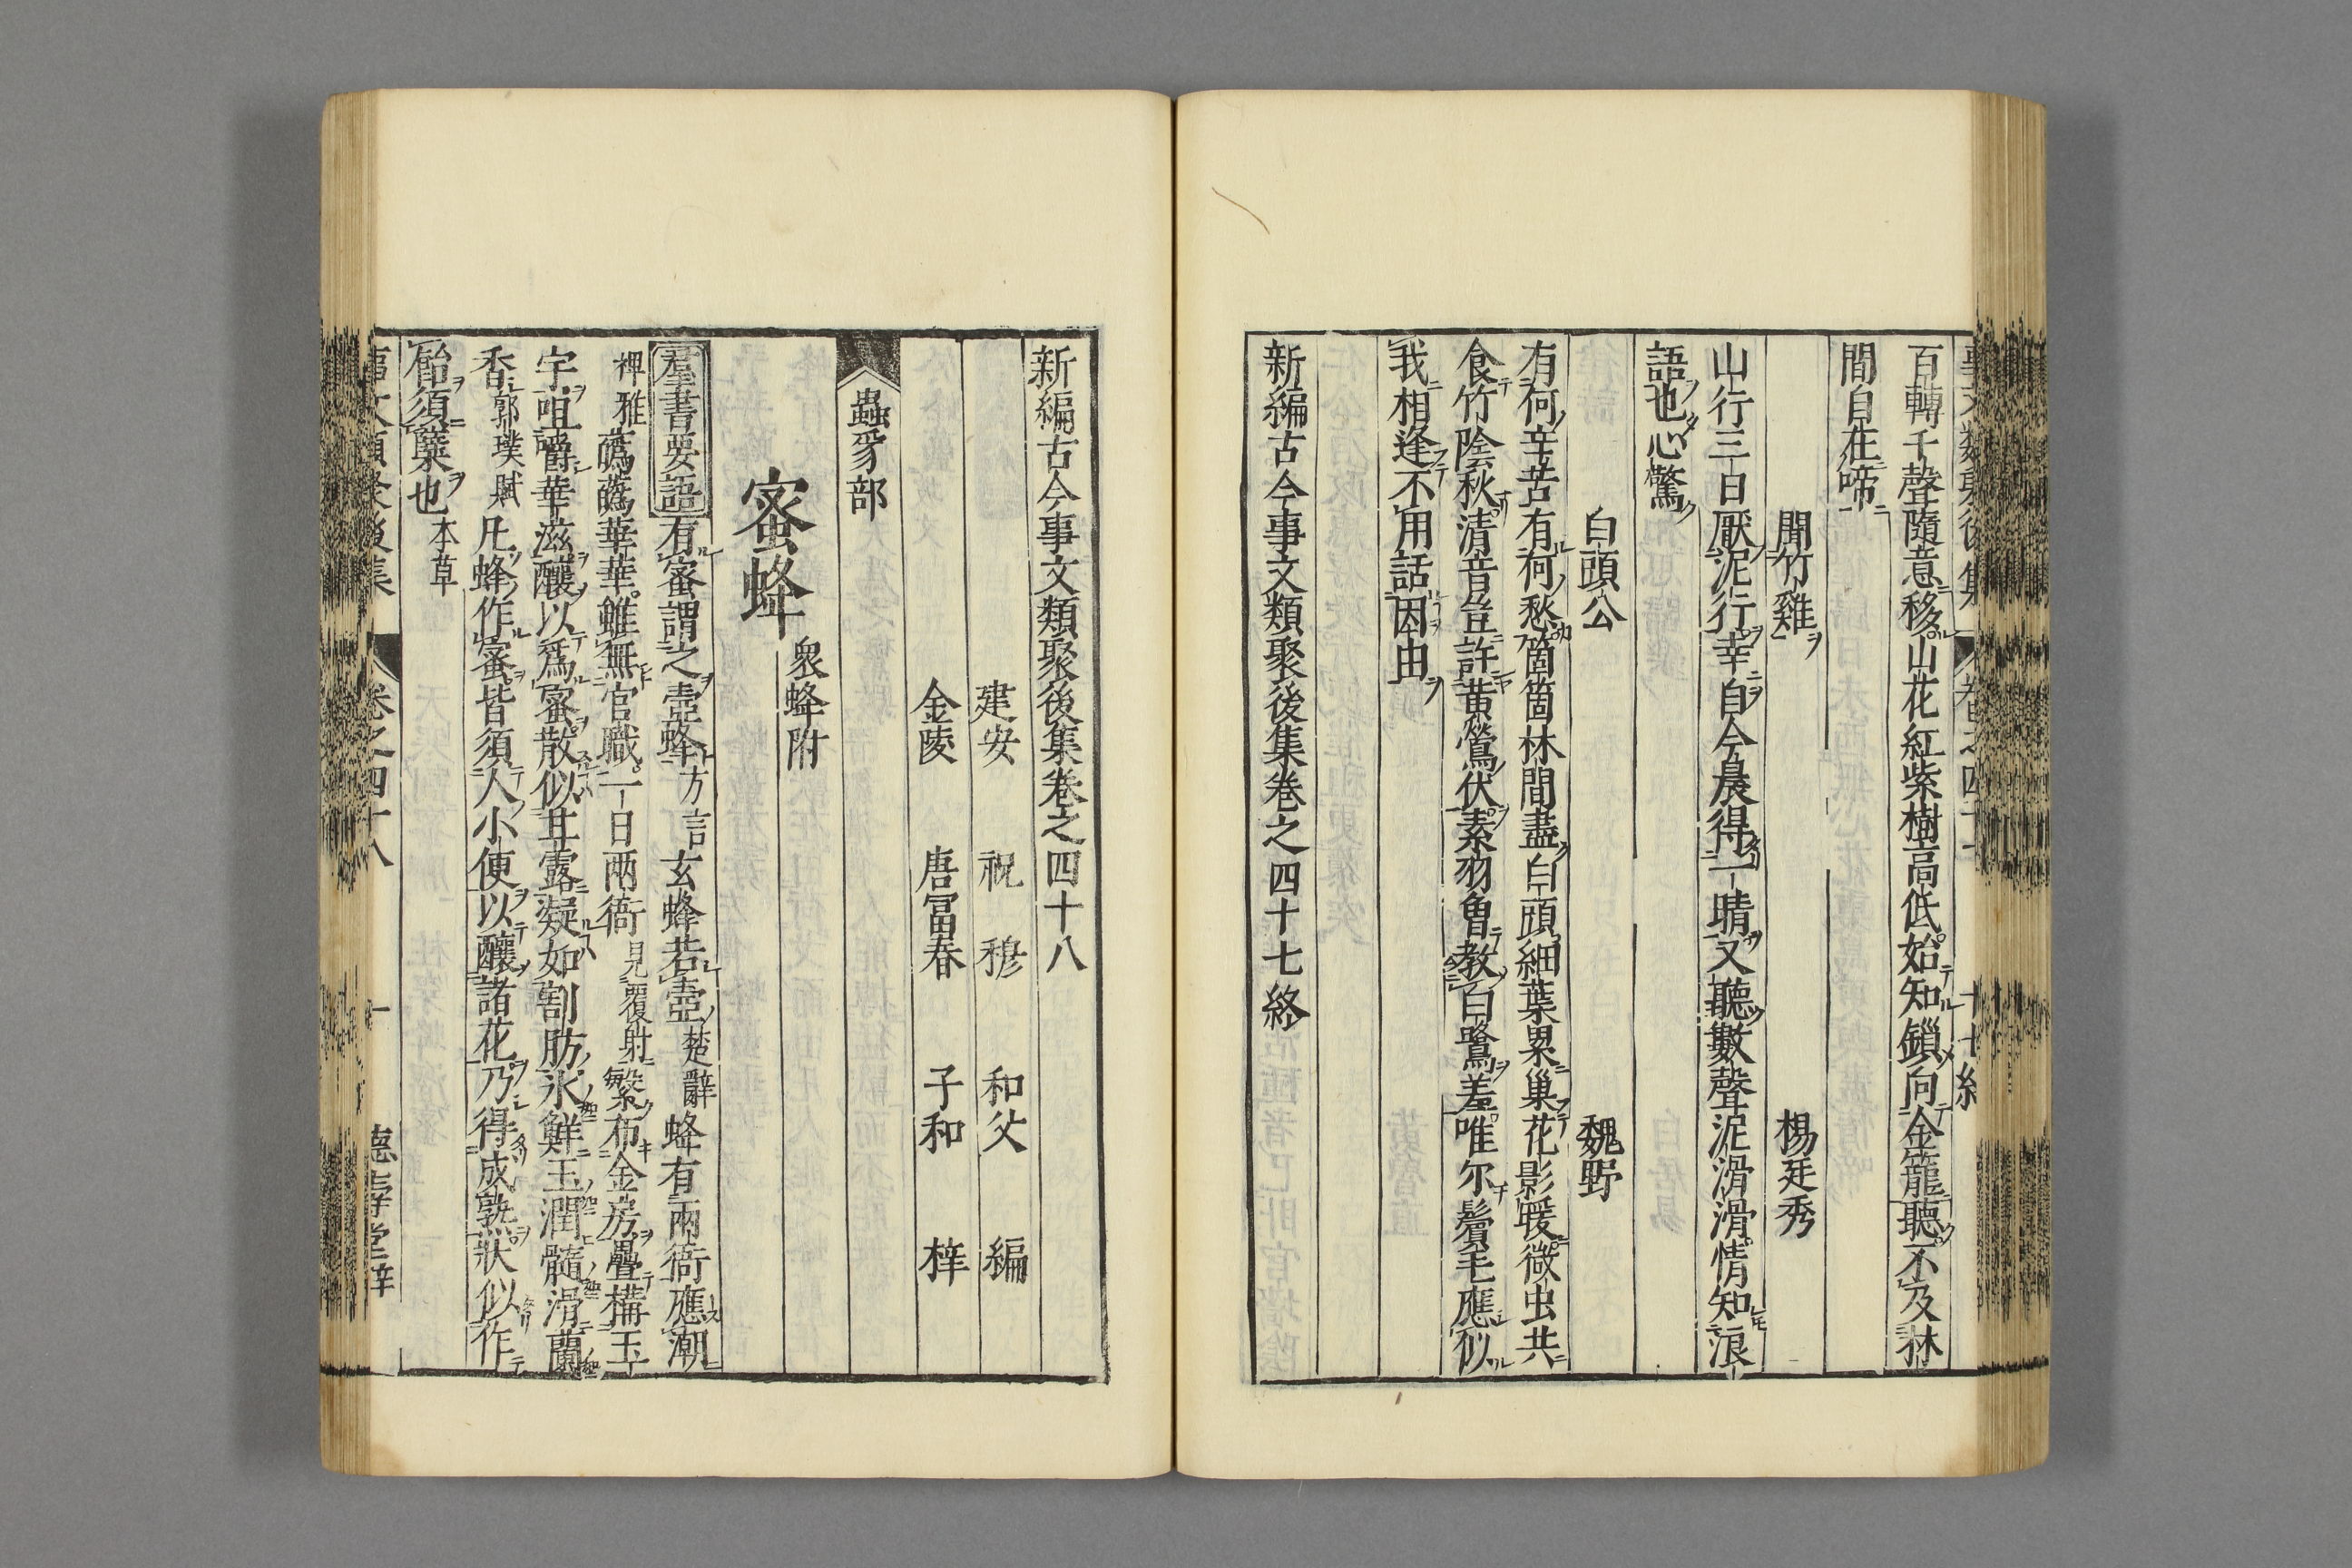 百轉千聲隨意移山花紅紫樹高低始知鎻向金籠聽不及林
間自在啼
聞竹雞 楊廷秀
山行三日厭泥行幸自今晨得一晴又聽數聲泥滑滑情知浪
語也心驚
白頭公 魏野
有何辛苦有何愁箇箇林間盡白頭細葉累巢花影暖微虫共
食竹陰秋清音豈許黃鶯伏素羽曽教白鷺羞唯尔鬢毛應似
我相逢不用話因由
新編古今事文類聚後集卷之四十七終
新編古今事文類聚後集卷之四十八
建安 祝 穆 和父 編
金陵 唐富春 子和 梓
蟲豸部
蜜蜂 衆蜂附
羣書要語 有蜜謂之壺蜂 方言 玄蜂若壺 楚辭 蜂有兩衙應潮
裨雅 蔿蔿華華雖無官職一日兩衙 見覆射 繁布金房疊構玉
宇咀嚼華滋釀以爲蜜散似甘露凝如割肪氷鮮玉潤髓滑蘭
香 郭璞賦 凡蜂作蜜皆須人小便以釀諸花乃得成熟狀似作
飴須糱也 本草
事文類聚後集 卷之四十八 一 德壽堂梓